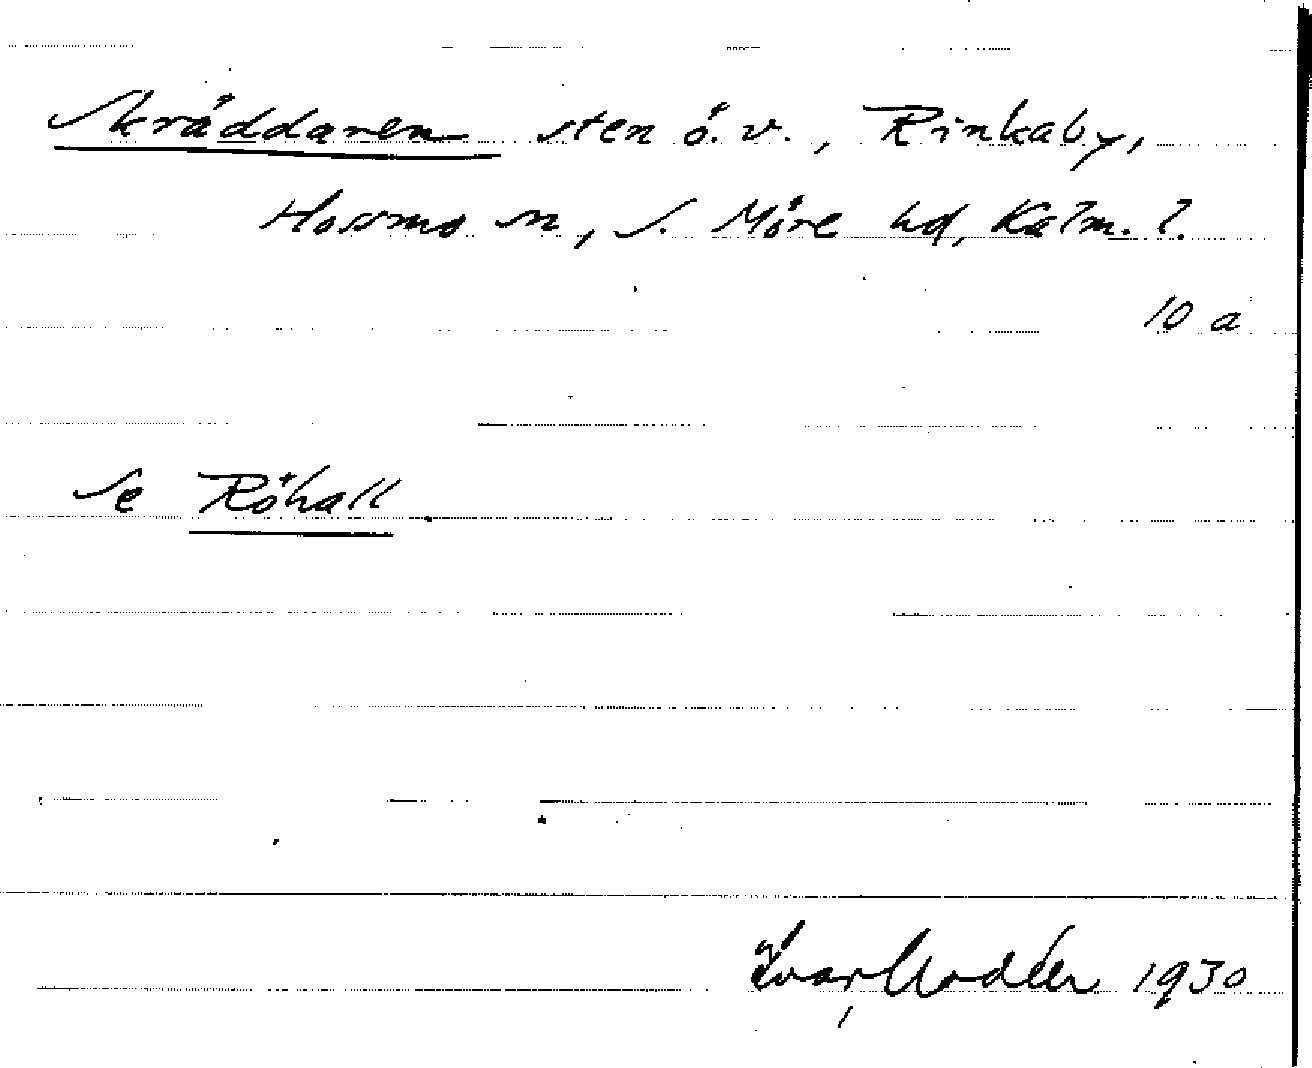 Skräddaren sten ö.v., Rinkaby,
Hossmo sn, S. Möre hd, Kalm. l.
10 a
Se Röhall
Ivar Modéer 1930